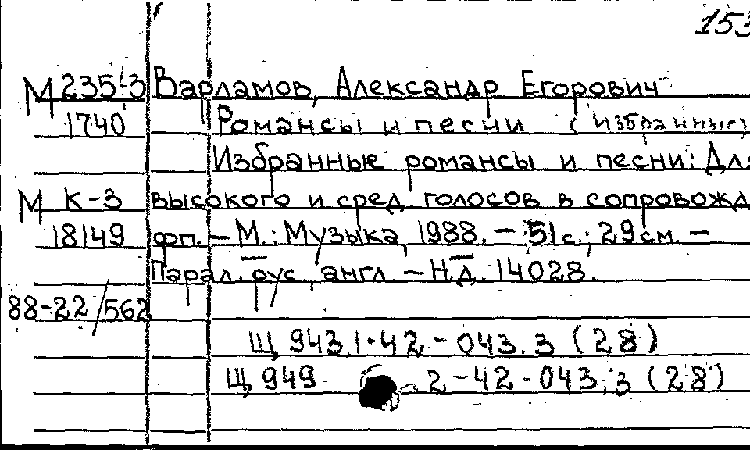 153
М 235-3 Варламов, Александр Егорович
1740 Романсы и песни (избранные)
Избранные романсы и песни: Для
М К-3 высокого и сред. голосов в сопровожд.
18149 фп. – М.: Музыка, 1988. – 51 с.; 29 см. –
Парал. рус., англ. – Н.д. 14028.
88-22/562
Щ 943.1-42-043.3 (28)
Щ 949 2-42-043.3 (28)